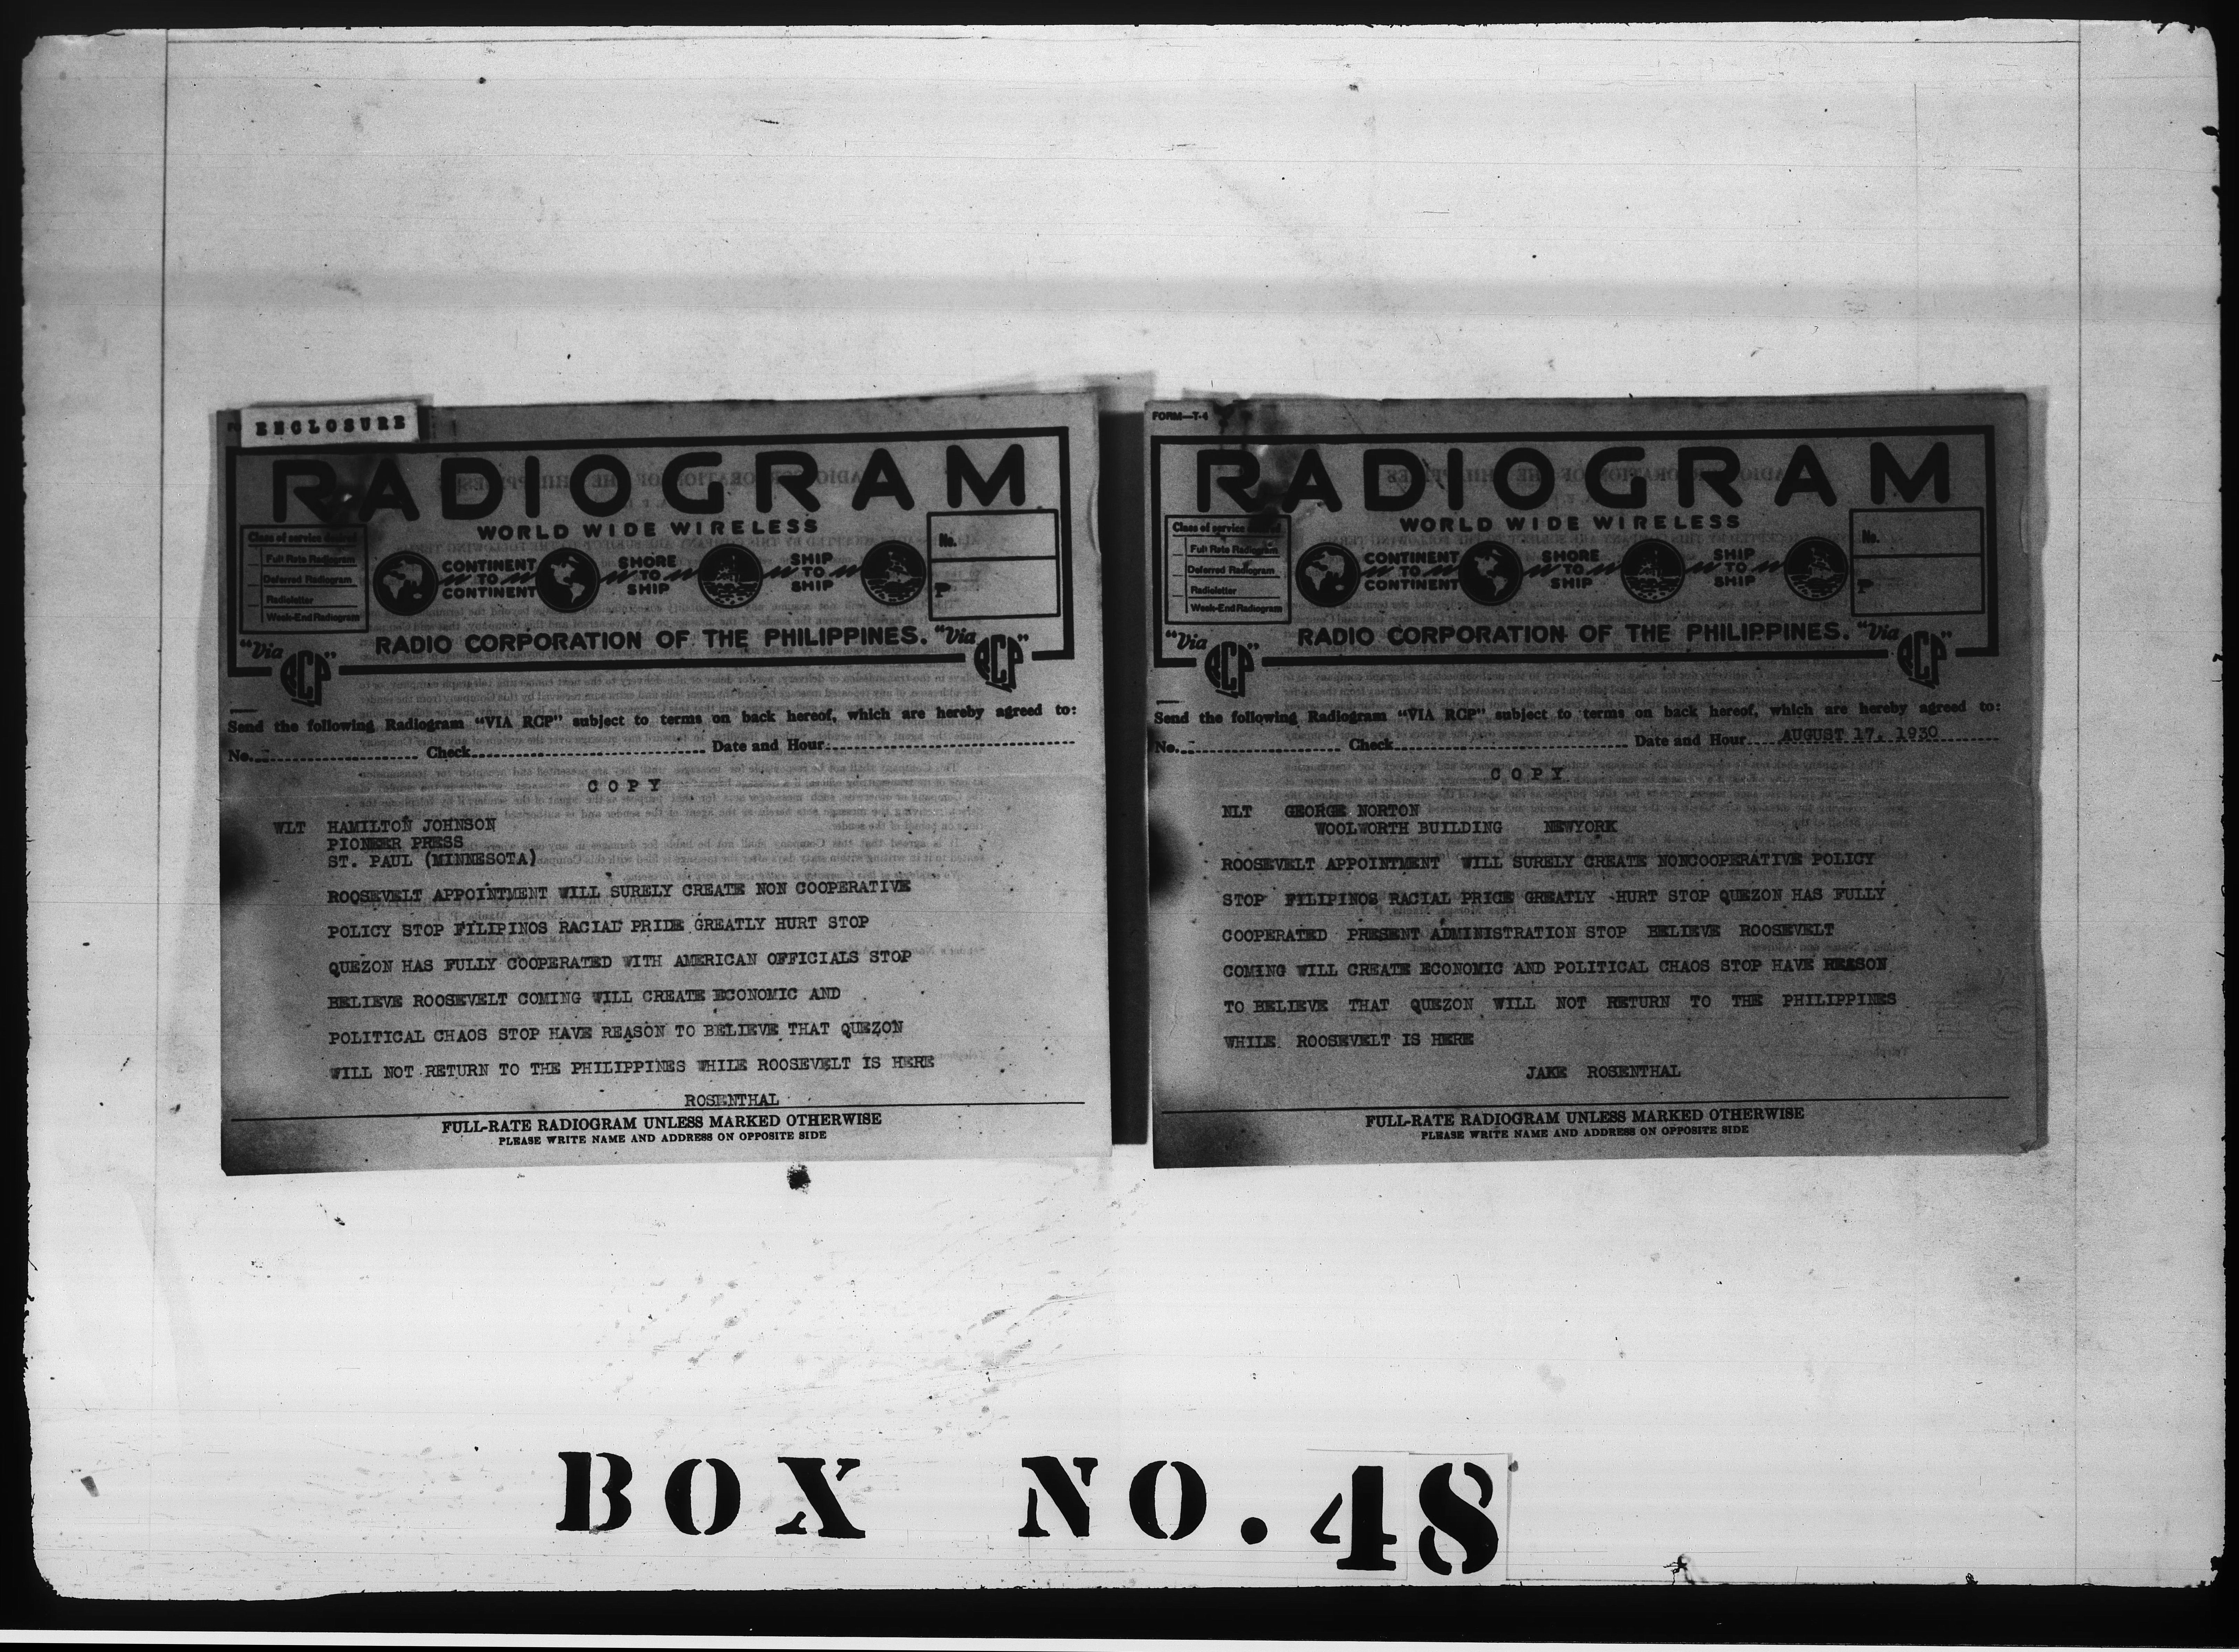 ENCLOSURE
RADIOGRAM
WORLD WIDE WIRELESS
Class of service desired
Full Rate Radiogram
Deferred Radiogram
Radioletter
Week-End Radiogram
CONTINENT TO CONTINENT
SHORE TO SHIP
SHIP TO SHIP
No.
P
"Via RCP"
RADIO CORPORATION OF THE PHILIPPINES.
"Via RCP"
Send the following Radiogram "VIA RCP" subject to terms on back hereof, which are hereby agreed to:
No. Check Date and Hour
COPY
WLT HAMILTON JOHNSON
PIONEER PRESS
ST. PAUL (MINNESOTA)
ROOSEVELT APPOINTMENT WILL SURELY CREATE NON COOPERATIVE
POLICY STOP FILIPINOS RACIAL PRIDE GREATLY HURT STOP
QUEZON HAS FULLY COOPERATED WITH AMERICAN OFFICIALS STOP
BELIEVE ROOSEVELT COMING WILL CREATE ECONOMIC AND
POLITICAL CHAOS STOP HAVE REASON TO BELIEVE THAT QUEZON
WILL NOT RETURN TO THE PHILIPPINES WHILE ROOSEVELT IS HERE
ROSENTHAL
FULL-RATE RADIOGRAM UNLESS MARKED OTHERWISE
PLEASE WRITE NAME AND ADDRESS ON OPPOSITE SIDE
FORM—T-4
RADIOGRAM
WORLD WIDE WIRELESS
Class of service desired
Full Rate Radiogram
Deferred Radiogram
Radioletter
Week-End Radiogram
CONTINENT TO CONTINENT
SHORE TO SHIP
SHIP TO SHIP
No.
P
"Via RCP"
RADIO CORPORATION OF THE PHILIPPINES.
"Via RCP"
Send the following Radiogram "VIA RCP" subject to terms on back hereof, which are hereby agreed to:
No. Check Date and Hour AUGUST 17, 1930
COPY
NLT GEORGE NORTON
WOOLWORTH BUILDING NEWYORK
ROOSEVELT APPOINTMENT WILL SURELY CREATE NONCOOPERATIVE POLICY
STOP FILIPINOS RACIAL PRICE GREATLY HURT STOP QUEZON HAS FULLY
COOPERATED PRESENT ADMINISTRATION STOP BELIEVE ROOSEVELT
COMING WILL CREATE ECONOMIC AND POLITICAL CHAOS STOP HAVE REASON
TO BELIEVE THAT QUEZON WILL NOT RETURN TO THE PHILIPPINES
WHILE ROOSEVELT IS HERE
JAKE ROSENTHAL
FULL-RATE RADIOGRAM UNLESS MARKED OTHERWISE
PLEASE WRITE NAME AND ADDRESS ON OPPOSITE SIDE
BOX NO. 48